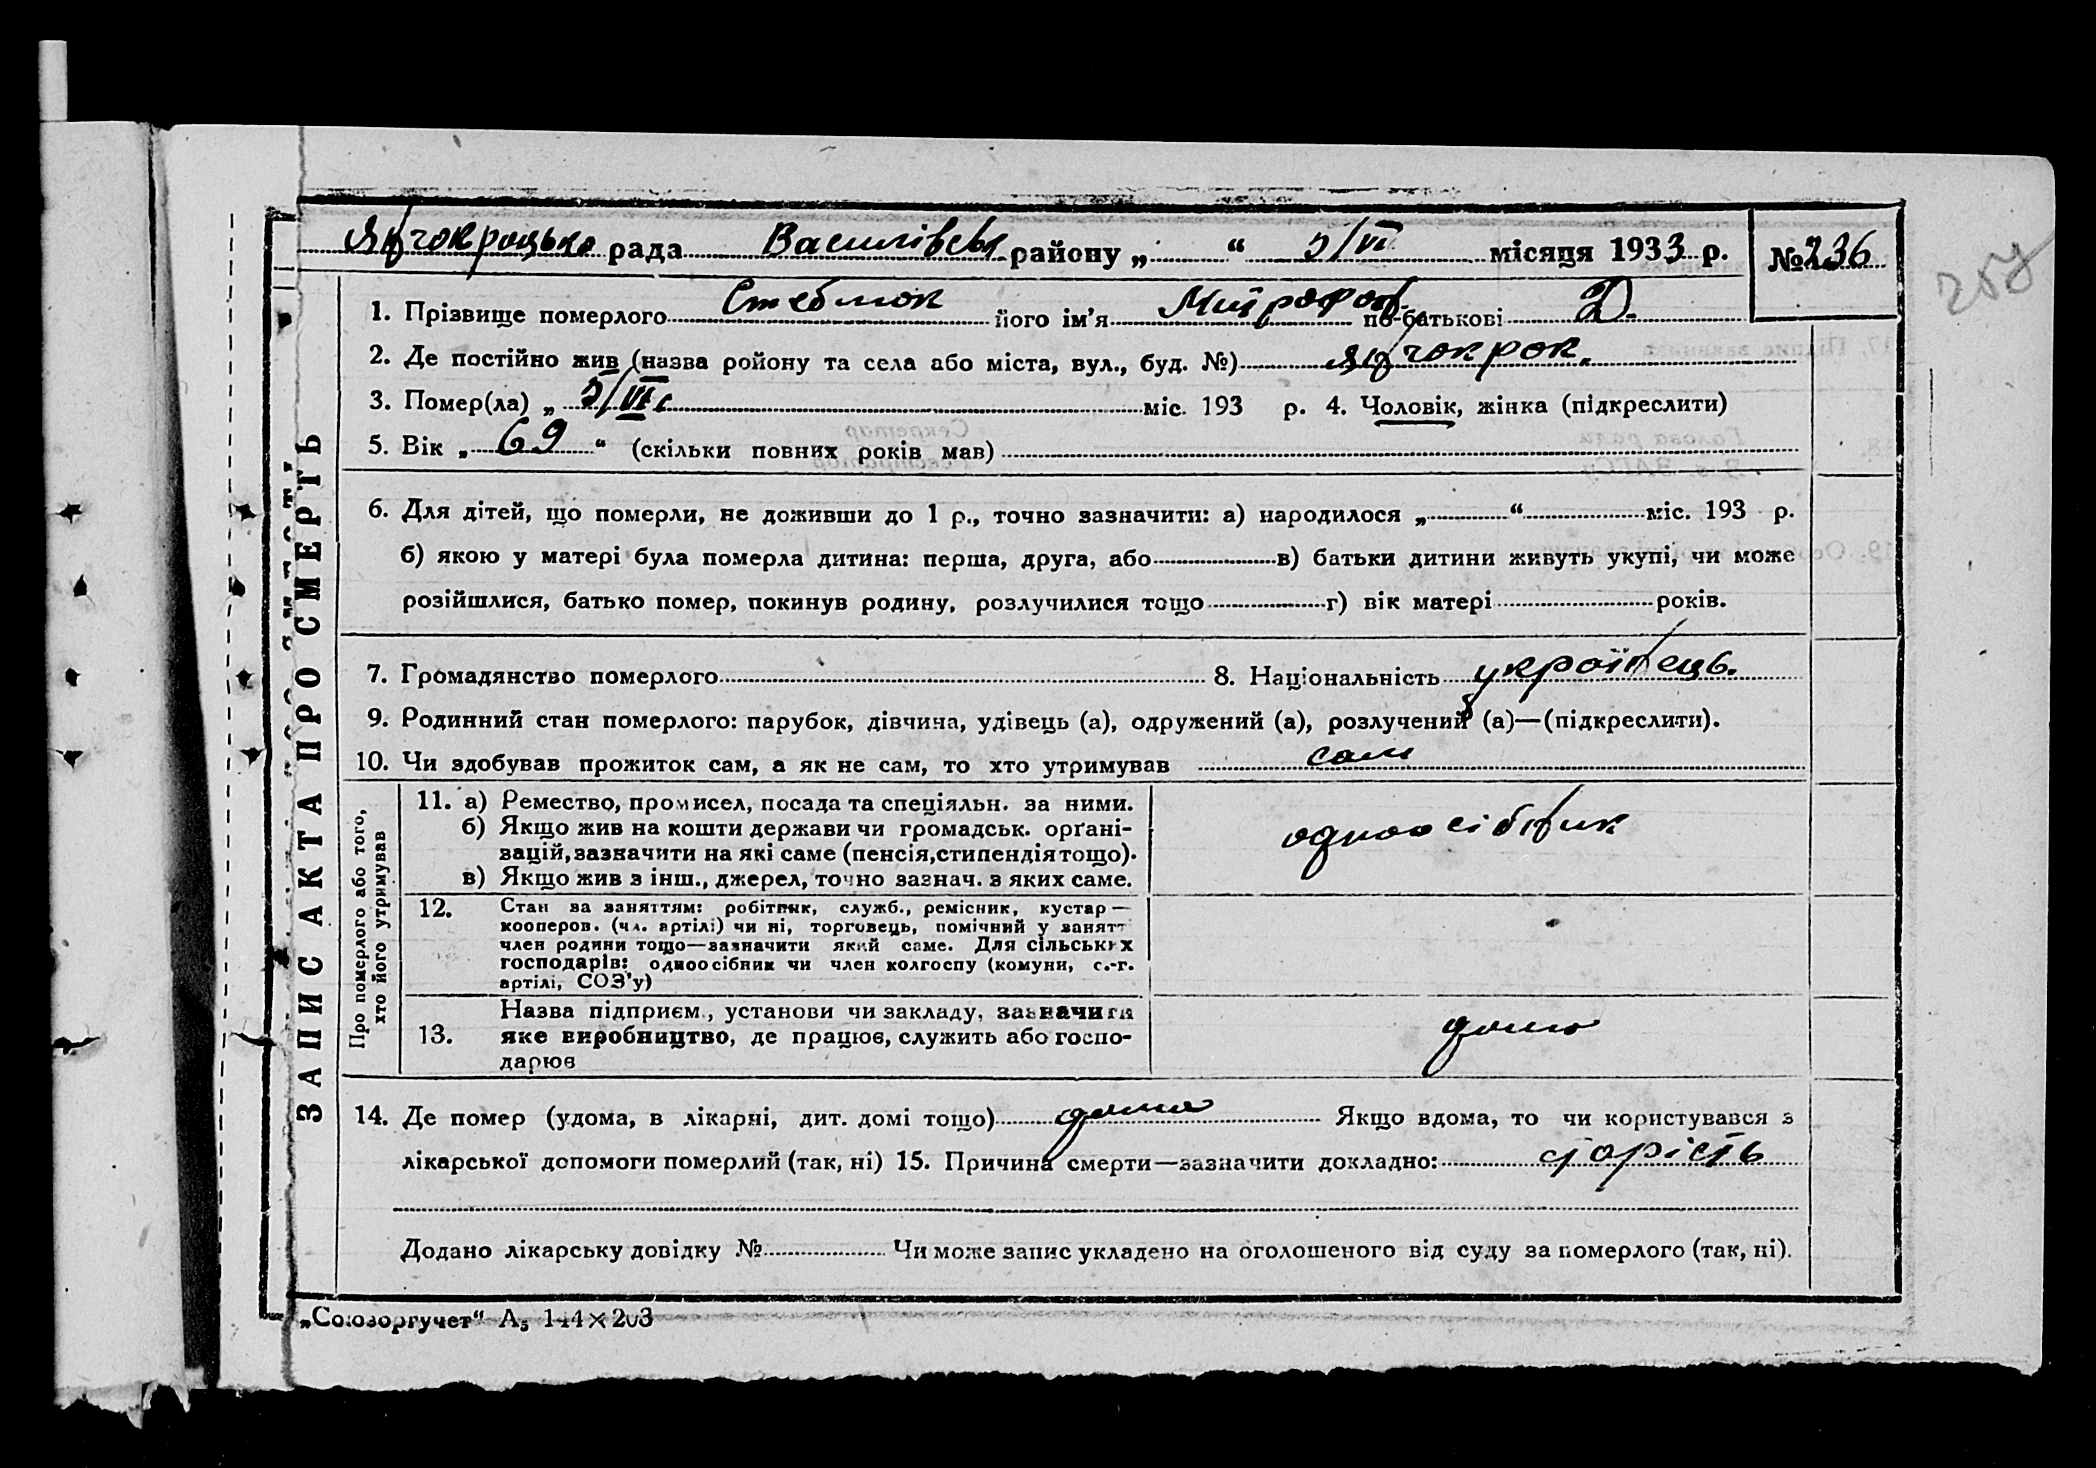 Янчокрацька рада Василівськ району „ “ 5/VI місяця 1933 р. № 236
1. Прізвище померлого Стеблюк його ім’я Митрофан по-батькові Д.
2. Де постійно жив (назва ройону та села або міста, вул., буд. №) Янчокрок.
3. Помер(ла) „ 5/VI міс. 193 р. 4. Чоловік, жінка (підкреслити)
5. Вік „ 69 “ (скільки повних років мав)
6. Для дітей, що померли, не доживши до 1 р., точно зазначити: а) народилося „ “ міс. 193 р.
б) якою у матері була померла дитина: перша, друга, або в) батьки дитини живуть укупі, чи може
розійшлися, батько помер, покинув родину, розлучилися тощо г) вік матері років.
7. Громадянство померлого 8. Національність українець.
9. Родинний стан померлого: парубок, дівчина, удівець (а), одружений (а), розлучений (а)—(підкреслити).
10. Чи здобував прожиток сам, а як не сам, то хто утримував сам
Про померлого або того,
хто його утримував
11. а) Ремество, промисел, посада та спеціяльн. за ними.
б) Якщо жив на кошти держави чи громадськ. органі-
зацій, зазначити на які саме (пенсія, стипендія тощо).
в) Якщо жив з інш., джерел, точно зазнач. з яких саме.
одноосібник
12. Стан за заняттям: робітник, служб., ремісник, кустар—
кооперов. (чл. артілі) чи ні, торговець, помічний у занятт
член родини тощо—зазначити який саме. Для сільських
господарів: одноосібник чи член колгоспу (комуни, с.-г.
артілі, СОЗ’у)
13. Назва підприєм., установи чи закладу, зазначити
яке виробництво, де працює, служить або госпо-
дарює
дома
14. Де помер (удома, в лікарні, дит. домі тощо) дома Якщо вдома, то чи користувався з
лікарської допомоги померлий (так, ні) 15. Причина смерти—зазначити докладно: старість
Додано лікарську довідку № Чи може запис укладено на оголошеного від суду за померлого (так, ні).
ЗАПИС АКТА ПРО СМЕРТЬ
„Союзоргучет“ А₅ 144×203